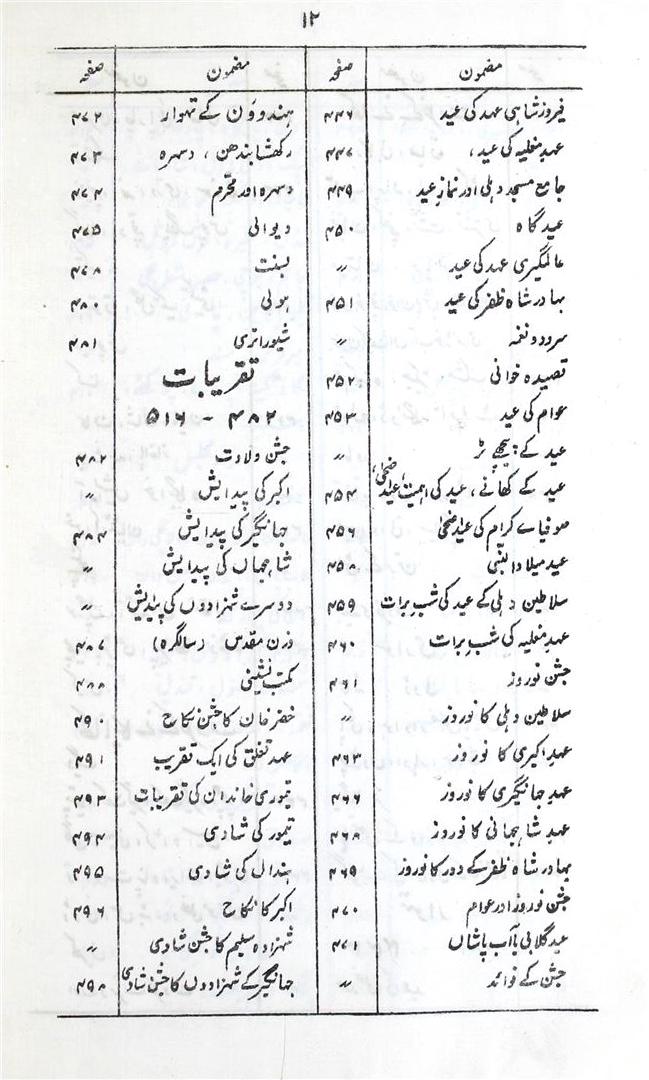 ۱۲
مضمون صفحہ
فیروز شاہی عہد کی عید ۴۴۶
عہد مغلیہ کی عید، ۴۴۷
جامع مسجد دہلی اور نماز عید ۴۴۹
عید گاہ ۴۵۰
عالمگیری عہد کی عید 〃
بہادر شاہ ظفر کی عید ۴۵۱
سرود و نغمہ 〃
قصیدہ خوانی ۴۵۲
عوام کی عید ۴۵۳
عید کے پیچھے ٹر 〃
عید کے کھانے، عید کی اہمیت، عید اضحیٰ، ۴۵۴
صوفیائے کرام کی عید اضحیٰ ۴۵۶
عید میلاد النبی ۴۵۸
سلاطین دہلی کے عہد کی شب برات ۴۵۹
عہد مغلیہ کی شب برات ۴۶۰
جشن نوروز ۴۶۱
سلاطین دہلی کا نوروز 〃
عہد اکبری کا نوروز ۴۶۳
عہد جہانگیری کا نوروز ۴۶۶
عہد شاہجہانی کا نوروز ۴۶۸
بہادر شاہ ظفر کے دور کا نوروز ۴۶۹
جشن نوروز اور عوام ۴۷۰
عید گلابی یا آب پاشاں ۴۷۱
جشن کے فوائد 〃
مضمون صفحہ
ہندوؤں کے تہوار ۴۷۲
رکھشا بندھن، دسہرہ ۴۷۳
دسہرہ اور محرم ۴۷۴
دیوالی ۴۷۵
بسنت ۴۷۸
ہولی ۴۸۰
شیوراتری ۴۸۱
تقریبات
۴۸۲ - ۵۱۶
جشن ولادت ۴۸۲
اکبر کی پیدایش 〃
جہانگیر کی پیدایش ۴۸۴
شاہجہاں کی پیدایش 〃
دوسرے شہزادوں کی پیدایش 〃
وزن مقدس (سالگرہ) ۴۸۶
مکتب نشینی ۴۸۸
خضر خان کا جشن نکاح ۴۹۰
عہد تغلق کی ایک تقریب ۴۹۱
تیموری خاندان کی تقریبات ۴۹۳
تیمور کی شادی ۴۹۴
ہندال کی شادی ۴۹۵
اکبر کا نکاح ۴۹۶
شہزادہ سلیم کا جشن شادی 〃
جہانگیر کے شہزادوں کا جشن شادی ۴۹۸